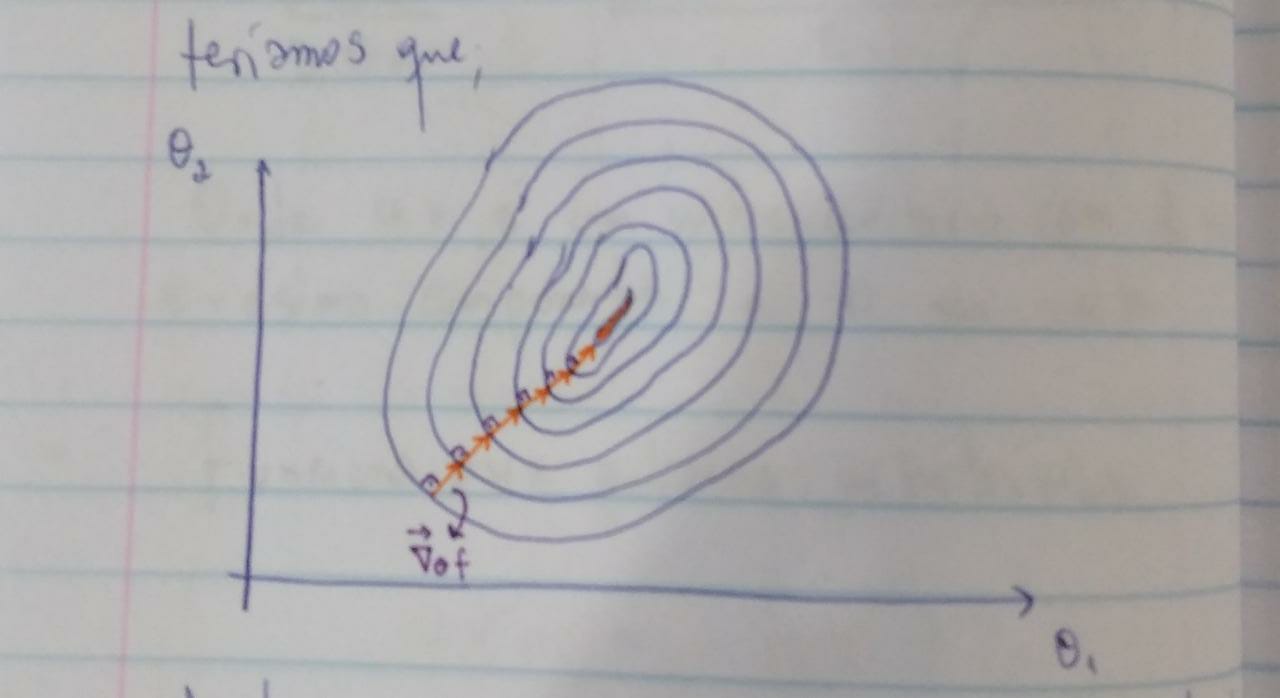 teriamos que,
θ₂
∇⃗θf
θ₁